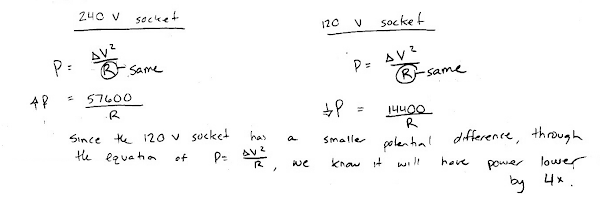 240 V socket
120 V socket
P = ΔV²/R - same
P = ΔV²/R - same
4P = 57600/R
P = 14400/R
Since the 120 V socket has a smaller potential difference, through
the equation of P = ΔV²/R, we know it will have power lower
by 4x.